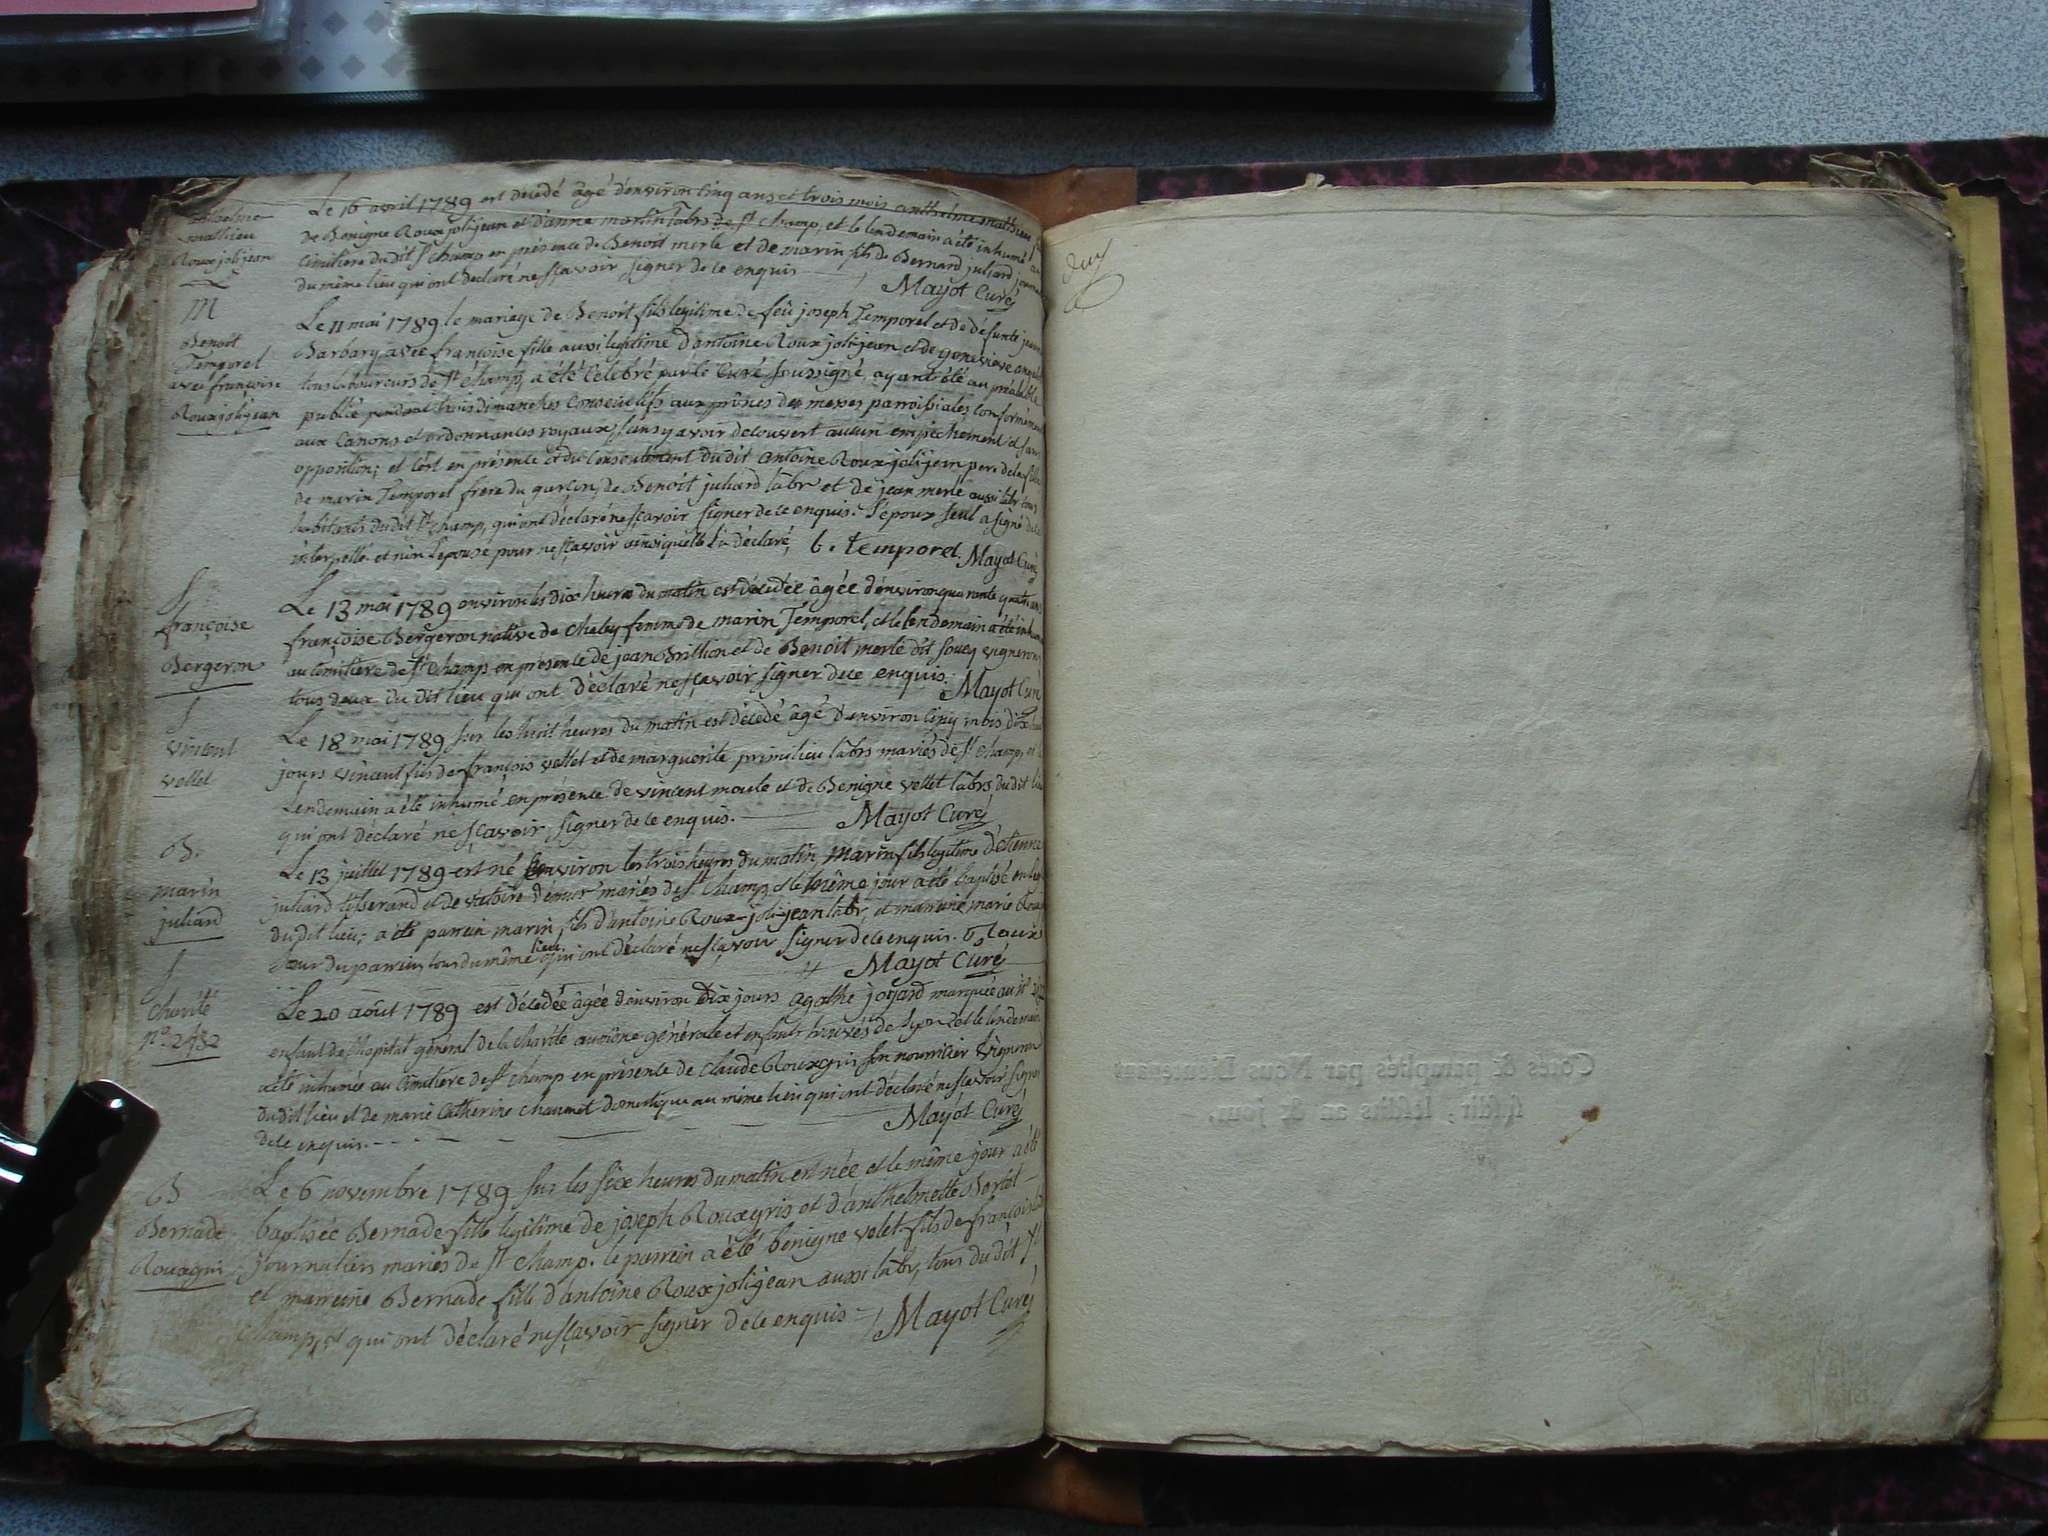 anthelme
mathieu
Roux joli jean
Le 16 avril 1789 est décédé âgé d'environ cinq ans et trois mois anthelme mathieu
de Benigne Roux joli jean et d'anne martin labrs de st champ, et le lendemain a été inhumé au
cimitiere du dit st champ en présence de Benoit merle et de marin fils de Bernard juliard
du même lieu qui ont déclaré ne sçavoir signer de ce enquis
Mayot Curé
M
Benoit
Temporel
avec françoise
Roux joli jean
Le 11 mai 1789 le mariage de Benoit fils legitime de feu joseph Temporel et de défunte
Barbary avec françoise fille aussi legitime d'antoine Roux joli jean et de geneviève
tous laboureurs de st champ, a été celebré par le Curé soussigné, ayant été au préalable
publié pendant trois dimanches consecutifs aux prônes des messes parroissiales, conformément
aux Canons et ordonnances royaux, sans y avoir decouvert aucun empêchement et sans
opposition; et c'est en présence et du consentement du dit antoine Roux joli jean pere de la fille
de marin Temporel frere du garçon, de Benoit juliard labr et de jean merle aussi labr tous
habitants du dit st champ, qui ont déclaré ne sçavoir signer de ce enquis. l'époux seul a signé de ce
interpellé et non l'épouse pour ne sçavoir ainsi quelle l'a déclaré, b. temporel. Mayot Curé
S
françoise
Bergeron
Le 13 mai 1789 environ les dix heures du matin est décédée âgée d'environ quarante quatre ans
françoise Bergeron native de femme de marin Temporel, et le lendemain a été
au cimitiere de st champ en présence de jean Brillion et de Benoit merle dit vigneron
tous deux du dit lieu qui ont déclaré ne sçavoir signer de ce enquis. Mayot Curé
S
vincent
vellet
Le 18 mai 1789 sur les huit heures du matin est décédé âgé d'environ cinq mois
jours vincent fils de françois vellet et de marguerite labrs mariés de st champ, et le
lendemain a été inhumé en présence de vincent moule et de Benigne vellet labrs du dit lieu
qui ont déclaré ne sçavoir signer de ce enquis.
Mayot Curé
B.
marin
juliard
Le 13 juillet 1789 est né environ les trois heures du matin, marin fils legitime d'étienne
juliard tisserand et de victoire mariés de st champ, et le même jour a été baptisé
du dit lieu; a été parrein marin fils d'antoine Roux-joli-jean labr, et marreine marie Roux
sœur du parrein, tous du même lieu qui ont déclaré ne sçavoir signer de ce enquis.
Mayot Curé
S
charité
no. 2432
Le 20 août 1789 est décédée âgée d'environ dix jours agathe joyard marquée au no
enfant de l'hopital général de la charité aumône générale et enfants trouvés de Lyon, et le lendemain
a été inhumée au cimitiere de st champ en présence de Claude Roux gris son nourricier vigneron
du dit lieu et de marie Catherine chaumet domestique au même lieu qui ont déclaré ne sçavoir signer
de ce enquis.
Mayot Curé
B
Bernade
Roux gris
Le 6 novembre 1789 sur les six heures du matin est née et le même jour a été
baptisée Bernade fille legitime de joseph Roux gris et d'anthelmette Bertet
journaliers mariés de st champ. le parrein a été benigne velet fils de françois
et marreine Bernade fille d'antoine Roux joli jean aussi labr, tous du dit st
champ, et qui ont déclaré ne sçavoir signer de ce enquis
Mayot Curé
Cotés & paraphés par Nous Lieutenant
susdit, lesdits an & jour,